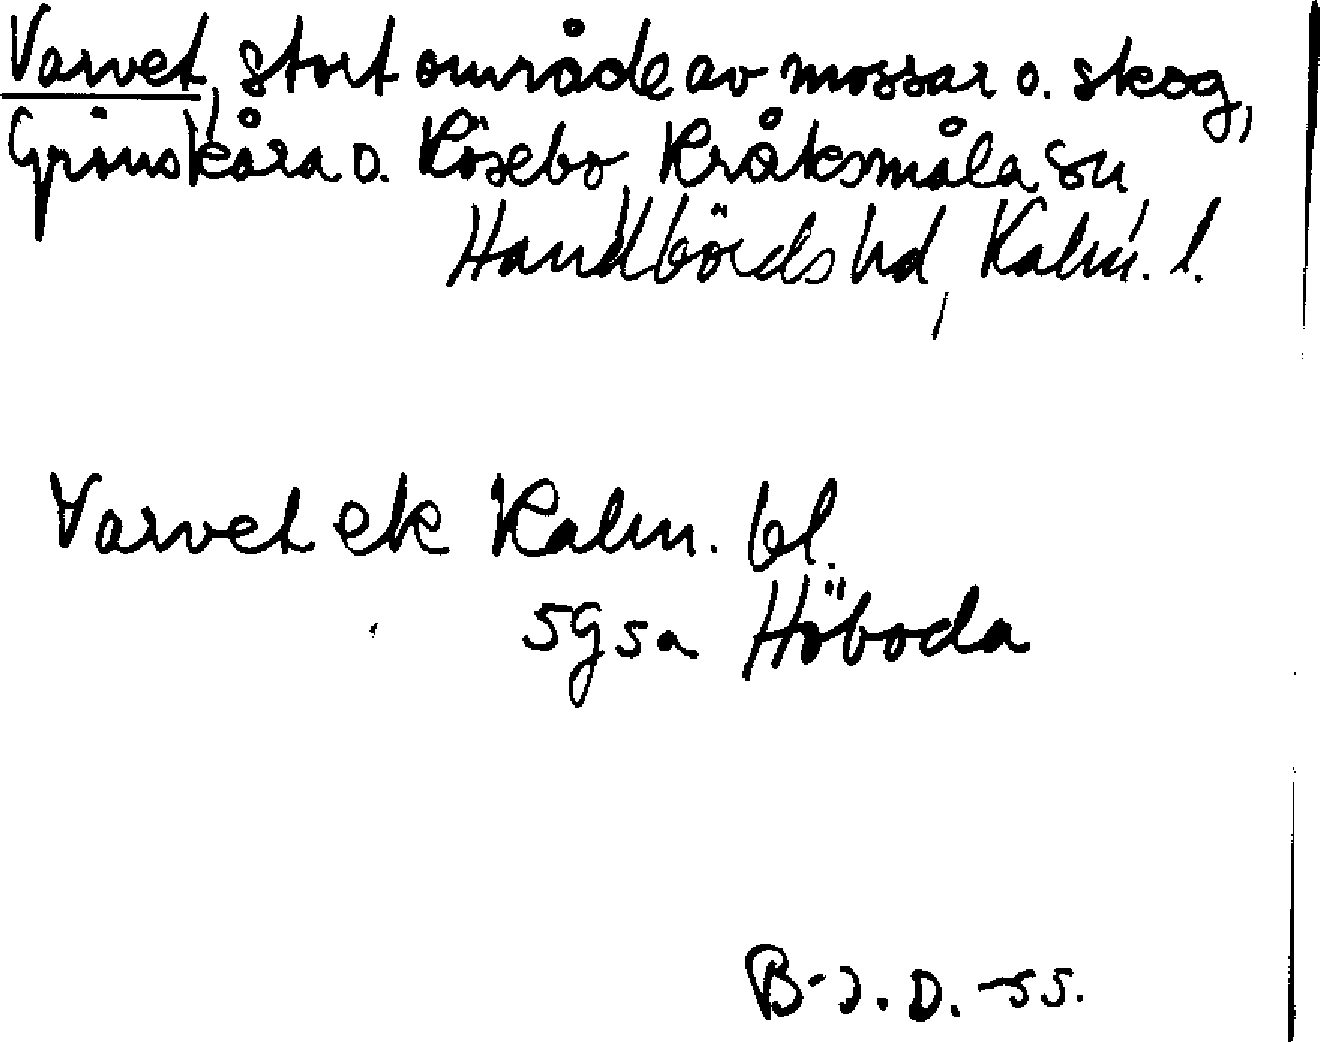 Varvet, stort område av mossar o. skog,
Grönskåra o. Rösebo, Kråksmåla sn
Handbörds hd, Kalm. l.
Varvet ek Kalm. bl.
5g5a Höboda
B-J.D. -55.